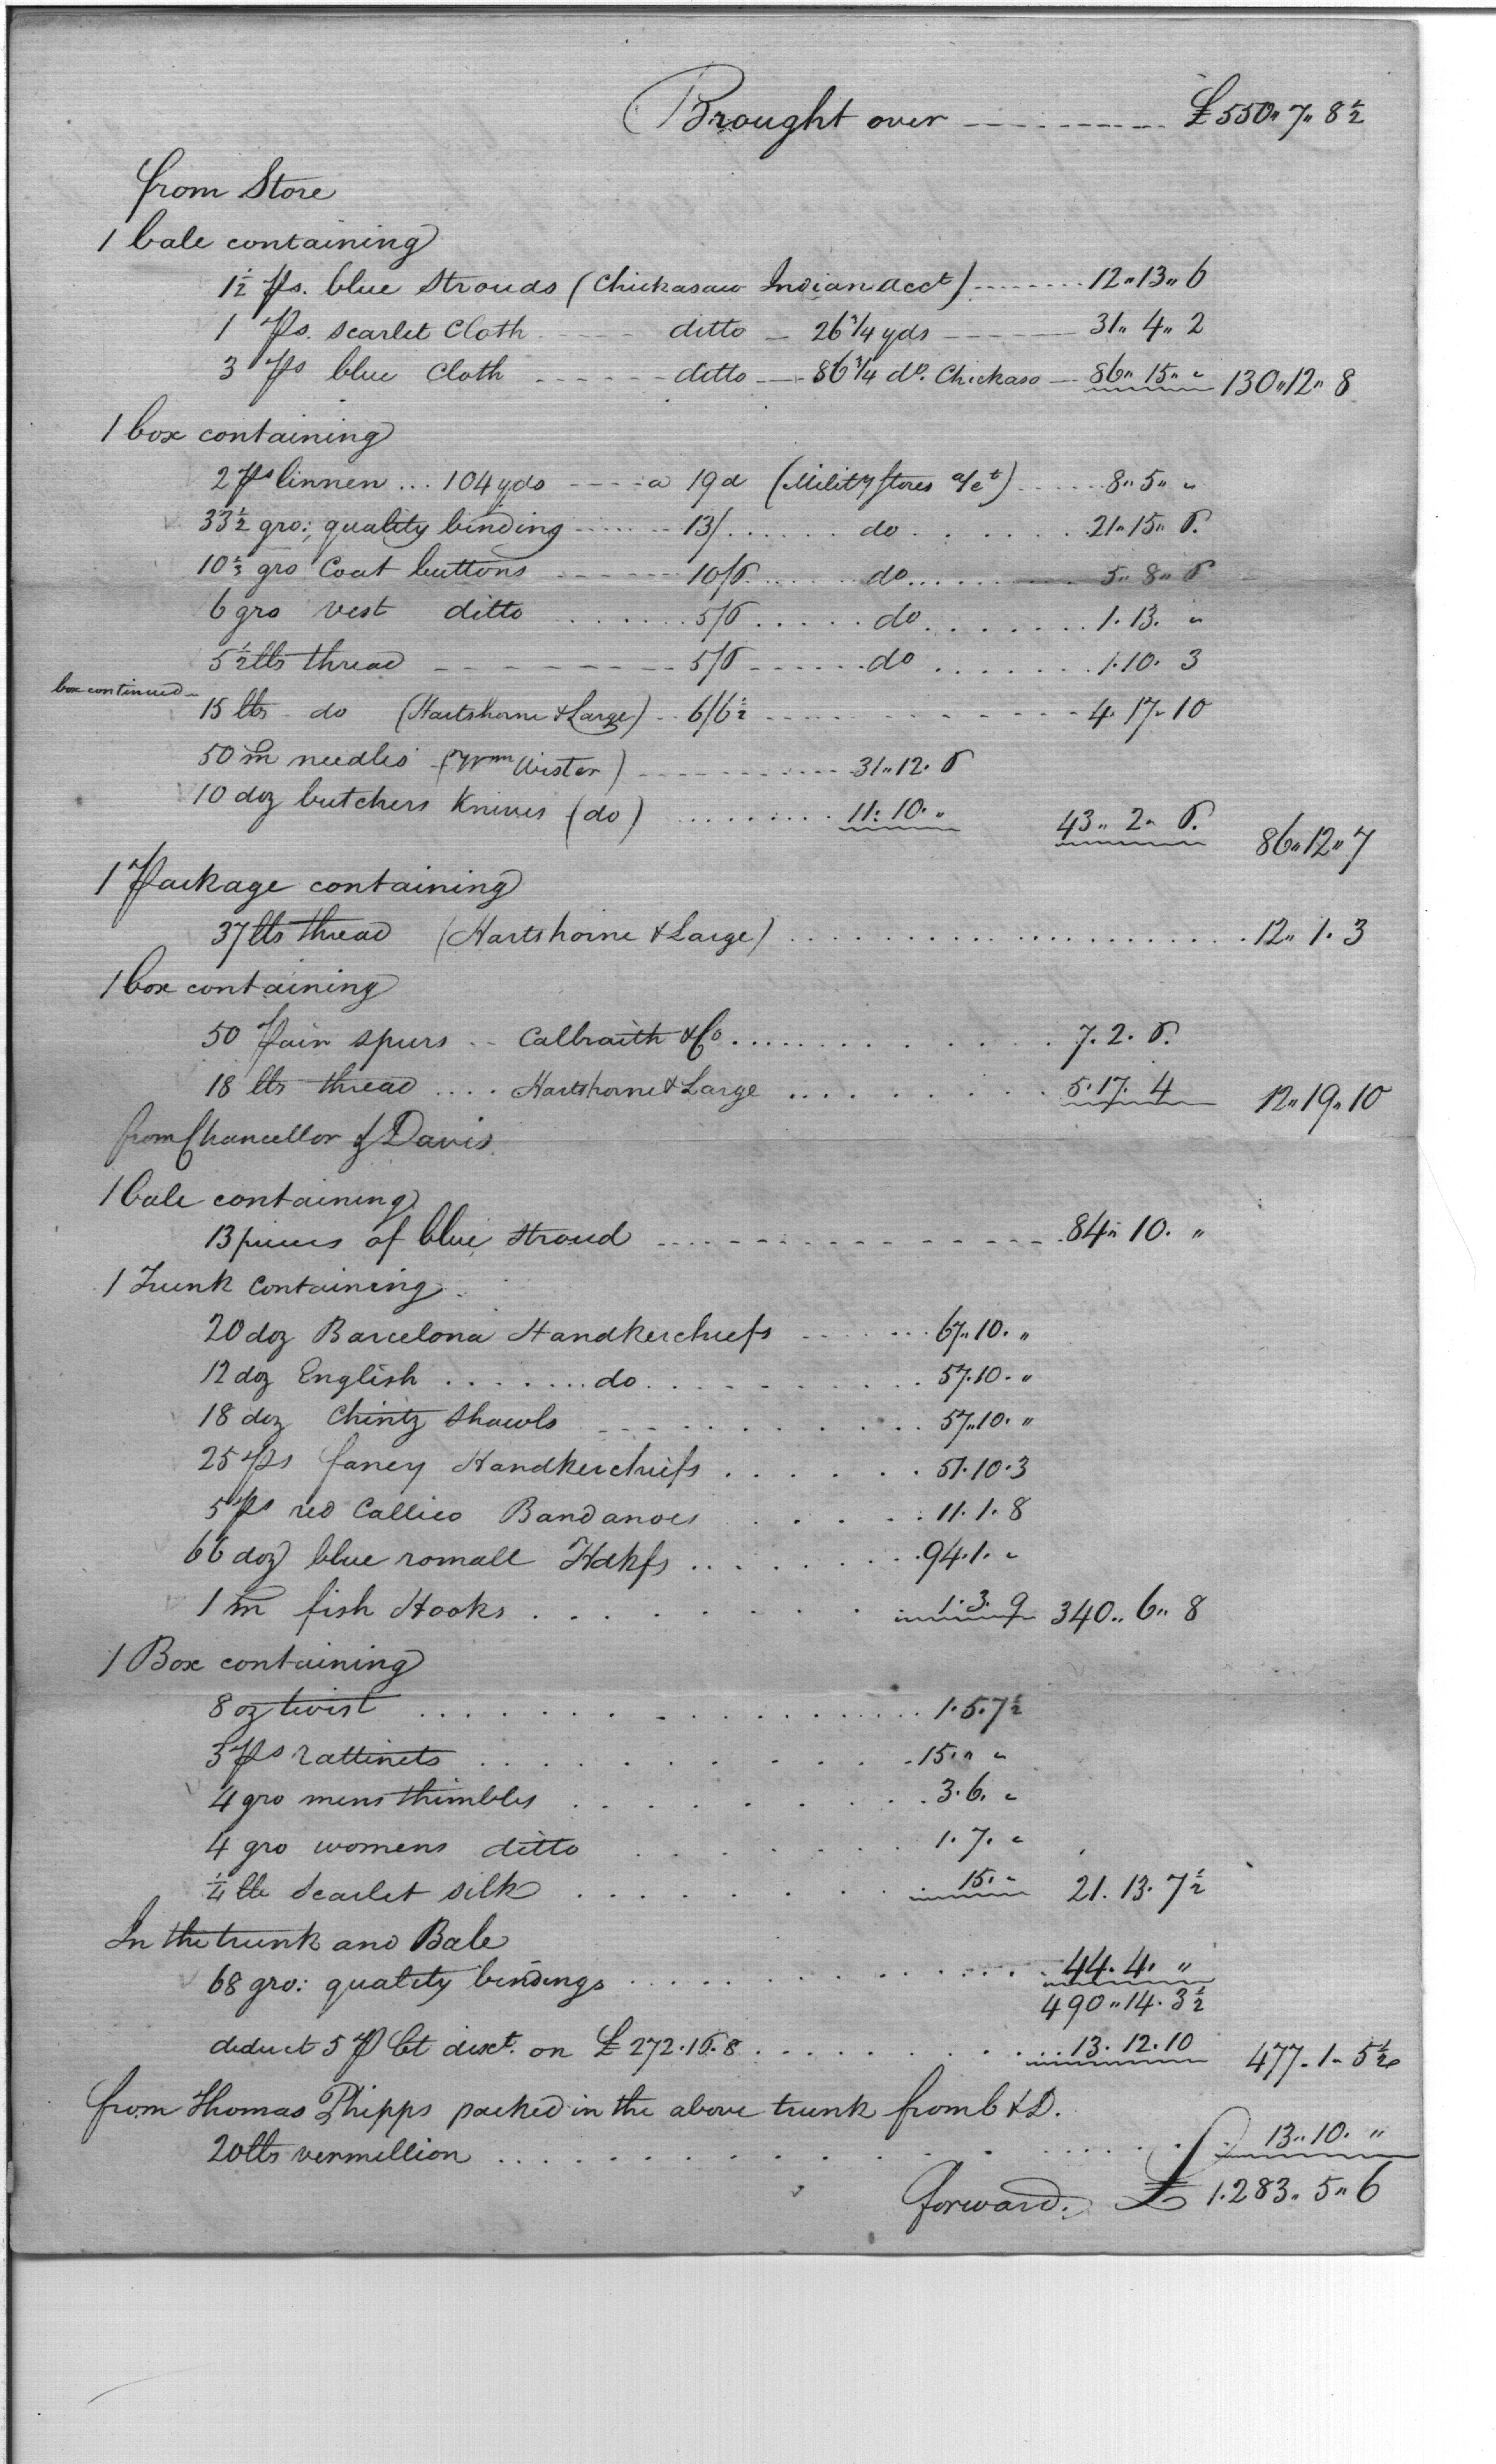 Brought over £550" 7" 8½
from Store
1 bale containing
1½ ps. blue Strouds (Chickasaw Indian acct) 12" 13" 6
1 Ps. Scarlet Cloth ditto 26¾ yds 31" 4" 2
3 ps blue Cloth ditto 86¾ do. Chickaso 86" 15" " 130" 12" 8
1 box containing
2 ps linnen ... 104 yds a 19d (Mility Stores a/ct) 8" 5" "
33½ gro: quality binding 13/ do 21" 15" 6.
10⅓ gro Coat buttons 10/6 do 5" 8" 6
6 gro vest ditto 5/6 do 1. 13. "
5½ lbs thread 5/6 do 1. 10. 3
box continued
15 lbs do (Hartshorne & Large) 6/6½ 4. 17. 10
50 m needles (Wm Wister) 31" 12. 6
10 doz butchers Knives (do) 11: 10. " 43" 2" 6. 86" 12" 7
1 Package containing
37 lbs thread (Hartshorne & Large) 12" 1. 3
1 box containing
50 Pair spurs Calbraith & Co 7. 2. 6.
18 lbs thread .... Hartshorne & Large 5. 17. 4 12" 19" 10
from Chancellor & Davis
1 bale containing
13 pieces of blue Stroud 84" 10. "
1 Trunk Containing
20 doz Barcelona Handkerchiefs 67" 10. "
12 doz English do 57. 10. "
18 doz Chintz Shawls 57" 10. "
25 ps fancy Handkerchiefs 51. 10. 3
5 ps red Callico Bandanoes 11. 1. 8
66 doz blue romall Hdkfs 94. 1. "
1 m fish Hooks 1. 3. 9 340" 6" 8
1 Box containing
8 oz twist 1. 5. 7½
3 ps rattinets 15. " "
4 gro mens thimbles 3. 6. "
4 gro womens ditto 1. 7. "
¼ lb Scarlet Silk 15. " 21. 13. 7½
In the trunk and Bale
68 gro: quality bindings 44. 4. "
490" 14. 3½
deduct 5 P Ct disct. on £272. 16. 8 13. 12. 10 477. 1. 5½
from Thomas Phipps packed in the above trunk from C & D.
20 lbs vermillion 13" 10. "
forward. £ 1.283" 5" 6